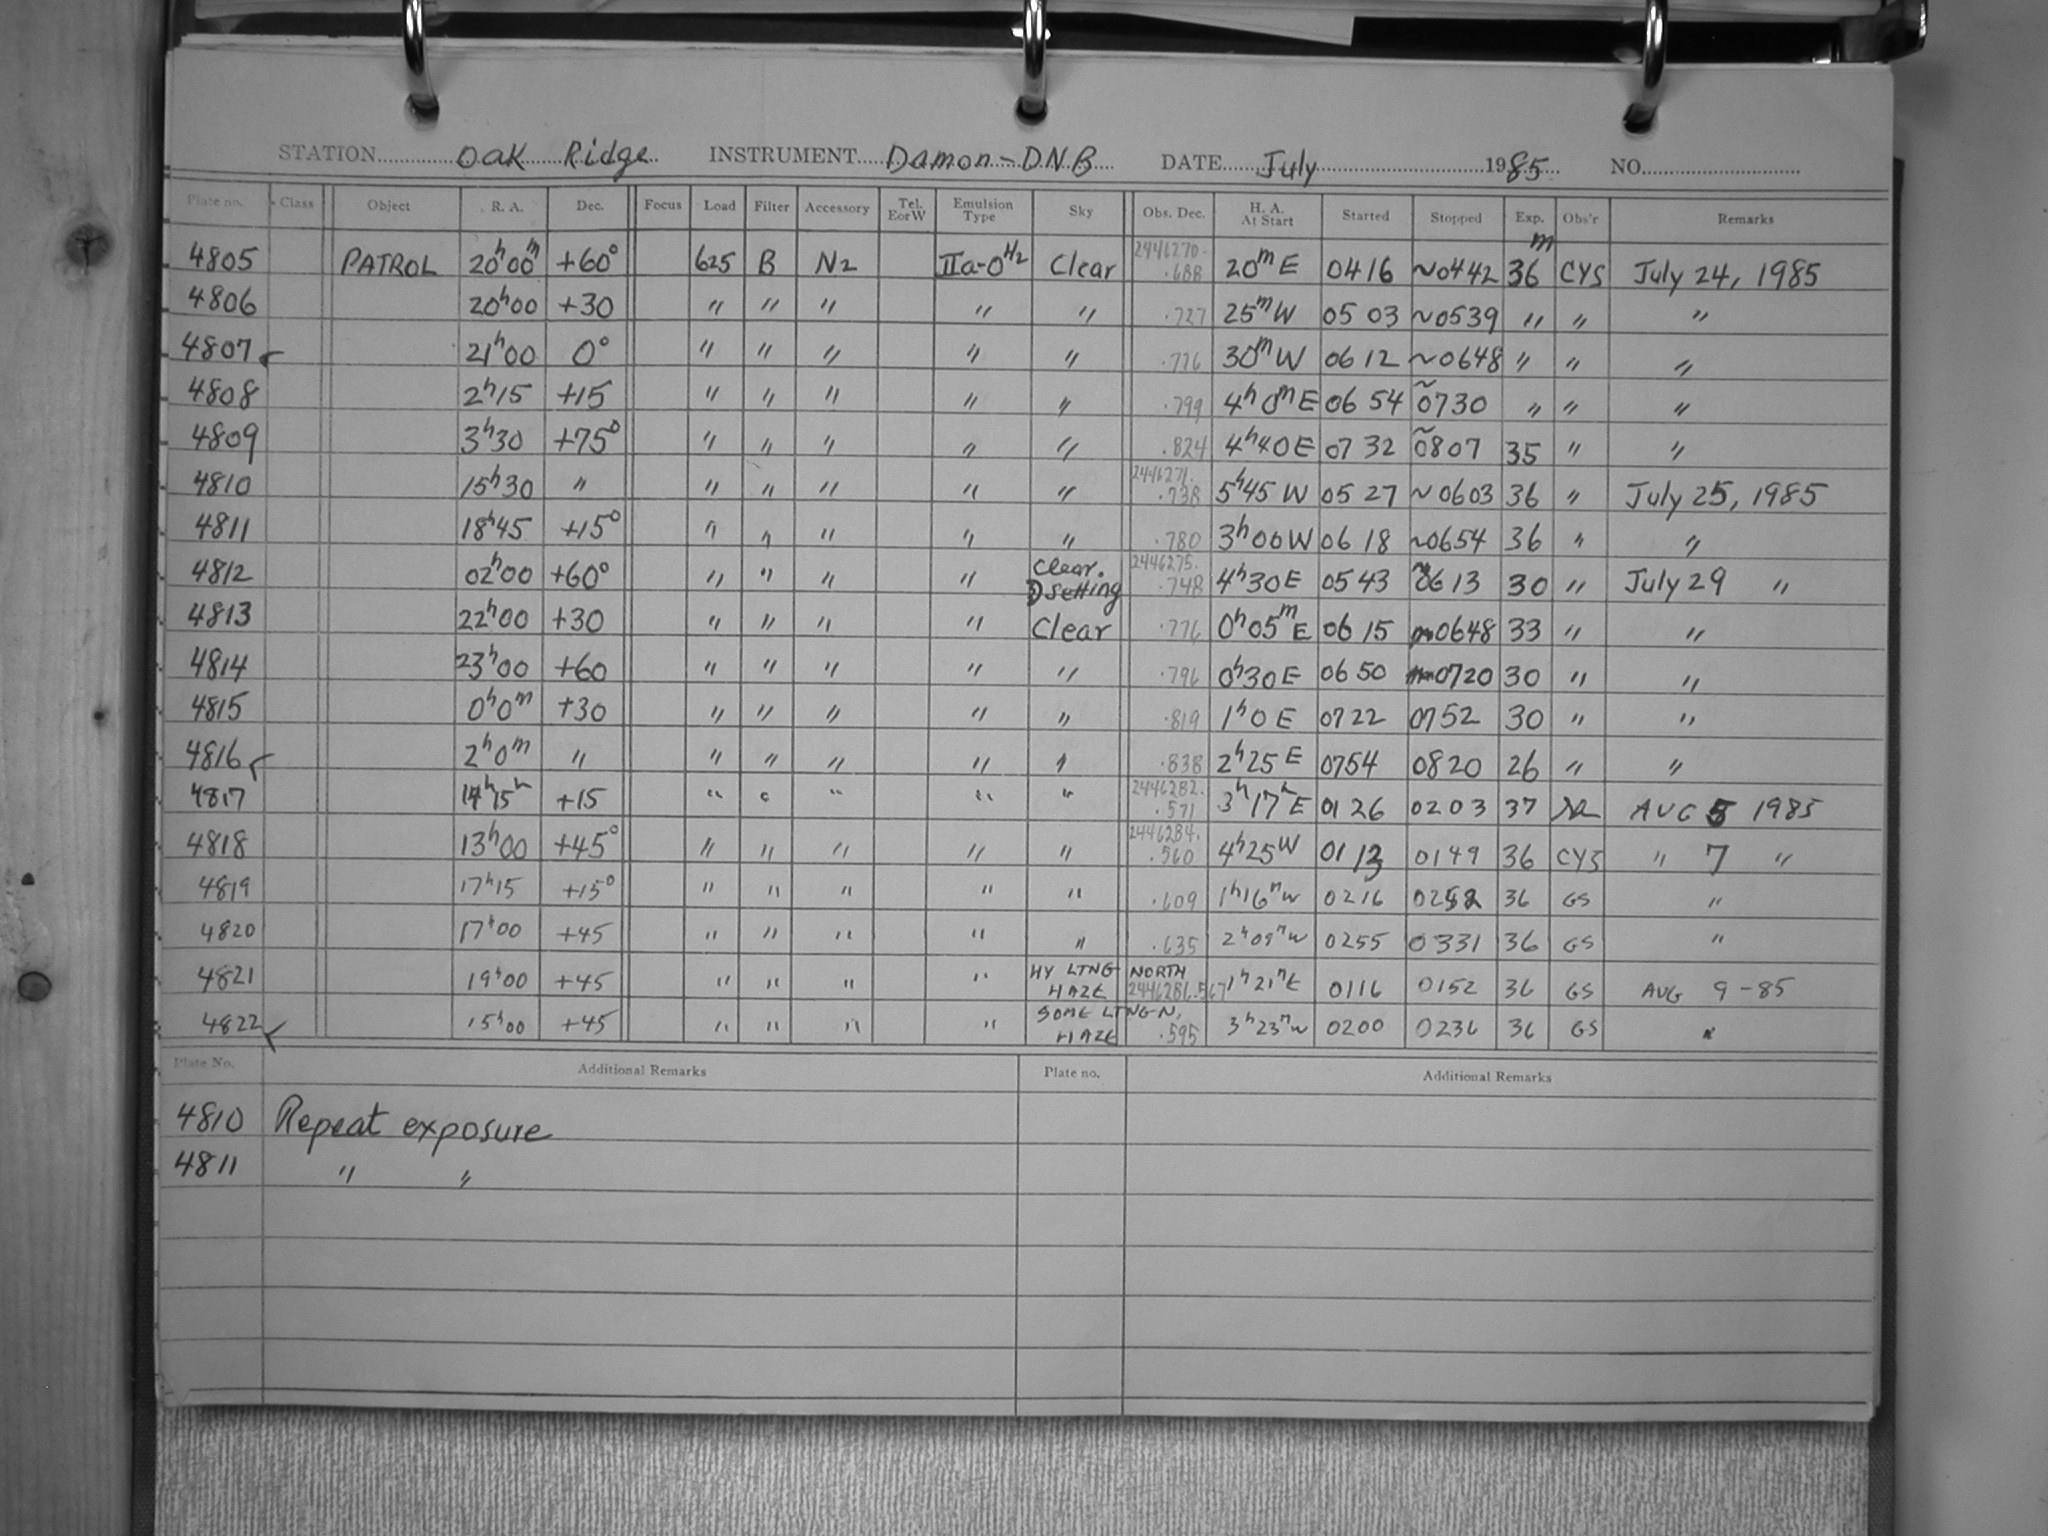 STATION Oak Ridge INSTRUMENT Damon-DNB DATE July 1985 NO.
Plate no. Class Object R. A. Dec. Focus Load Filter Accessory Tel. E or W Emulsion Type Sky Obs. Dec. H. A. At Start Started Stopped Exp. Obs'r Remarks
4805 PATROL 20h00m +60° 625 B N2 IIa-O H2 Clear 2446270. .688 20m E 0416 ~0442 36m CYS July 24, 1985
4806 20h00 +30 " " " " " .727 25m W 0503 ~0539 " " "
4807 21h00 0° " " " " " .776 30m W 0612 ~0648 " " "
4808 2h15 +15 " " " " " .799 4h0m E 0654 ~0730 " " "
4809 3h30 +75° " " " " " .824 4h40 E 0732 ~0807 35 " "
4810 15h30 " " " " " " 2446271. .738 5h45 W 0527 ~0603 36 " July 25, 1985
4811 18h45 +15° " " " " " .780 3h00 W 0618 ~0654 36 " "
4812 02h00 +60° " " " " Clear. setting 2446275. .748 4h30 E 0543 ~0613 30 " July 29 "
4813 22h00 +30 " " " " Clear .776 0h05m E 0615 0648 33 " "
4814 23h00 +60 " " " " " .796 0h30 E 0650 0720 30 " "
4815 0h0m +30 " " " " " .819 1h0 E 0722 0752 30 " "
4816 2h0m " " " " " " .838 2h25 E 0754 0820 26 " "
4817 +15 " " " " " 2446282. .571 3h17m E 0126 0203 37 AUG 5 1985
4818 13h00 +45° " " " " " 2446284. .560 4h25 W 0113 0149 36 CYS " 7 "
4819 17h15 +15° " " " " " .609 1h16m W 0216 0252 36 GS "
4820 17h00 +45 " " " " " .635 2h09m W 0255 0331 36 GS "
4821 19h00 +45 " " " " HY LTNG NORTH HAZE 2446286.567 1h21m E 0116 0152 36 GS AUG 9-85
4822 15h00 +45 " " " " SOME LTNG N, HAZE .595 3h23m W 0200 0236 36 GS "
Plate No. Additional Remarks Plate no. Additional Remarks
4810 Repeat exposure
4811 " "